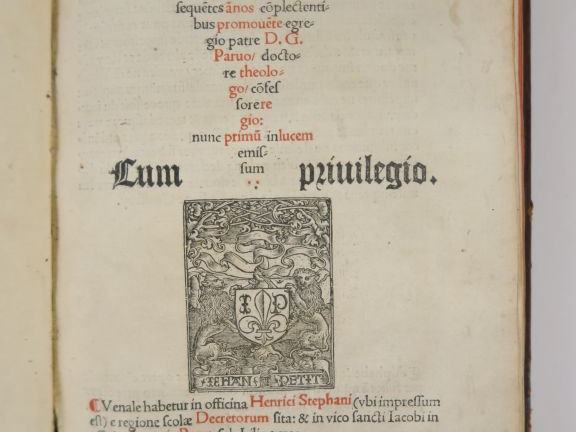 ſequẽtes ãnos cõplectenti-
bus promouẽte egre-
gio patre D. G.
Paruo/ docto-
re theolo-
go/ cõfeſ
ſore re
gio:
nunc primũ in lucem
emiſ-
ſum
Cum priuilegio.
I P
IEHAN PETIT
Venale habetur in officina Henrici Stephani (vbi impreſſum
eſt) e regione ſcolæ Decretorum ſita: & in vico ſancti Iacobi in